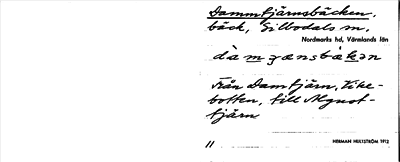 Dammtjärnsbäcken,
bäck, Silbodals sn,
Nordmarks hd, Värmlands län
Från Damtjärn, Vike-
botten, till Mynot-
tjärn
11 HERMAN HULTSTRÖM 1912